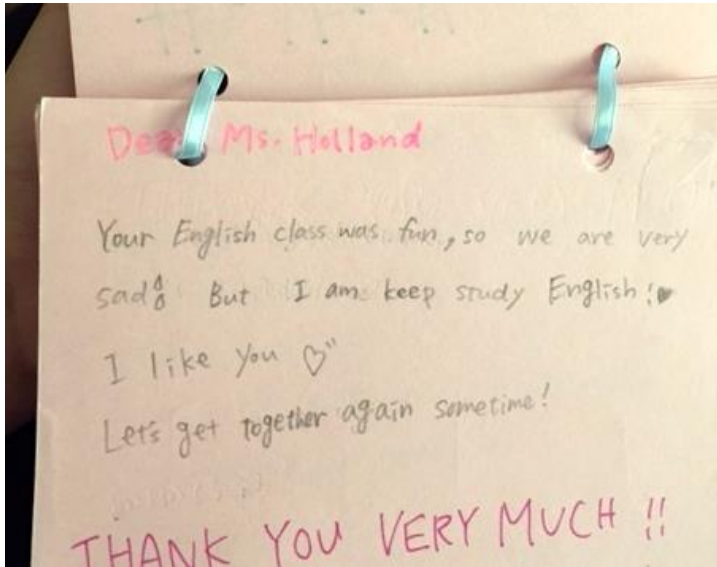 Dear Ms. Holland
Your English class was fun, so we are very
sad But I am keep study English!♥
I like you ♡"
Let's get together again sometime!
THANK YOU VERY MUCH !!